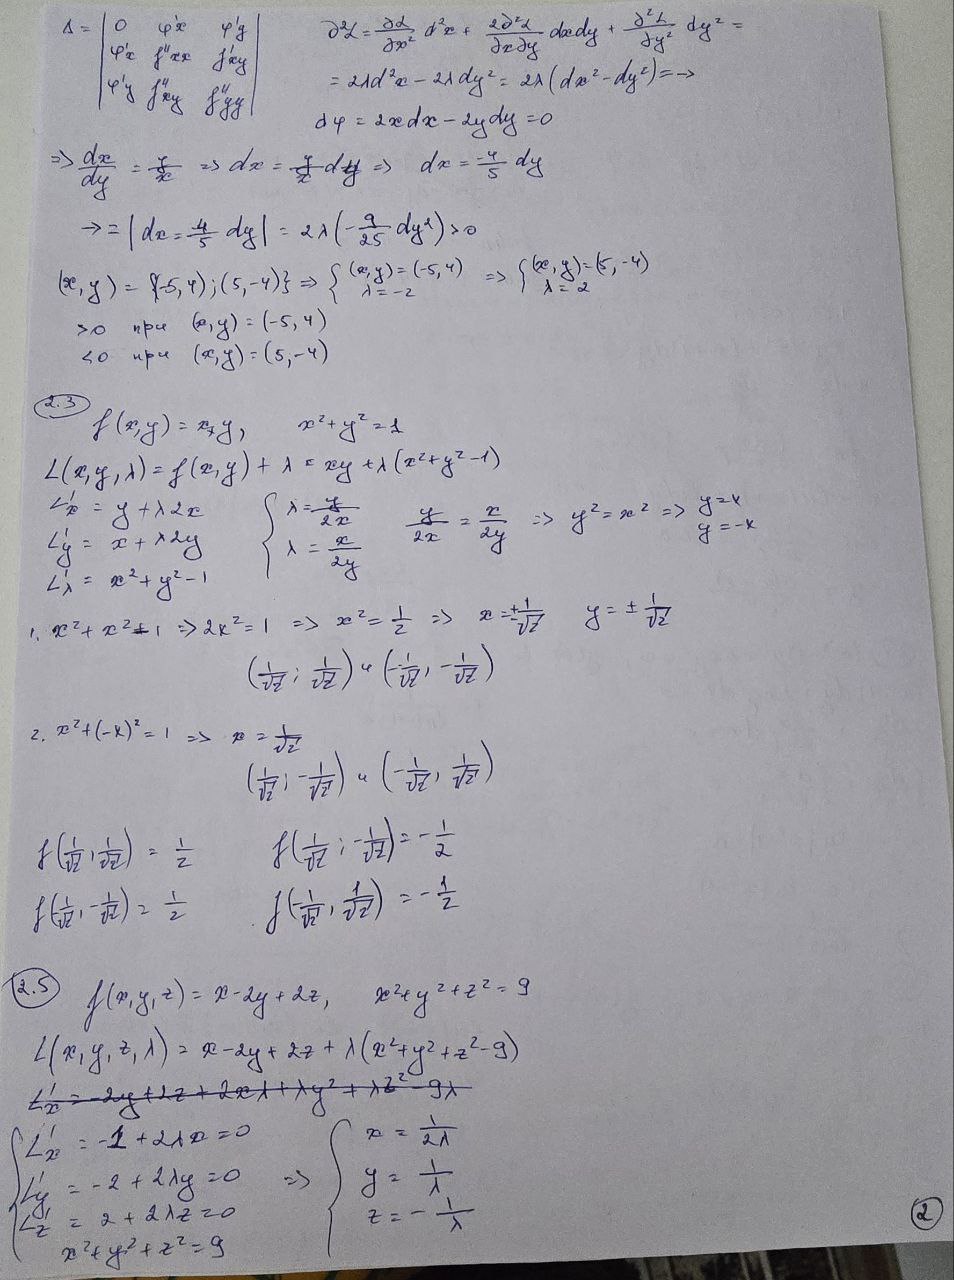 Δ = | 0 φ'x φ'y |
| φ'x f''xx f'xy |
| φ'y f''xy f''yy |
∂²L = ∂L/∂x² d²x + 2∂²L/∂x∂y dxdy + ∂²L/∂y² dy² =
= 2λd²x - 2λdy² = 2λ(dx² - dy²) = →
dφ = 2xdx - 2ydy = 0
=> dx/dy = y/x => dx = y/x dy => dx = -4/5 dy
→ = |dx = 4/5 dy| = 2λ(-9/25 dy²) > 0
(x, y) = {-5, 4); (5, -4)} => { (x, y) = (-5, 4) λ = -2 => { (x, y) = (5, -4) λ = 2
>0 при (x, y) = (-5, 4)
<0 при (x, y) = (5, -4)
2.3 f(x, y) = xy, x² + y² = 1
L(x, y, λ) = f(x, y) + λ = xy + λ(x² + y² - 1)
L'x = y + λ2x
L'y = x + λ2y
L'λ = x² + y² - 1
{ λ = y/2x
λ = x/2y
y/2x = x/2y => y² = x² => y = x
y = -x
1. x² + x² = 1 => 2x² = 1 => x² = 1/2 => x = ±1/√2 y = ±1/√2
(1/√2; 1/√2) и (-1/√2, -1/√2)
2. x² + (-x)² = 1 => x = 1/√2
(1/√2; -1/√2) и (-1/√2, 1/√2)
f(1/√2, 1/√2) = 1/2 f(1/√2; -1/√2) = -1/2
f(-1/√2, -1/√2) = 1/2 f(-1/√2, 1/√2) = -1/2
2.5 f(x, y, z) = x - 2y + 2z, x² + y² + z² = 9
L(x, y, z, λ) = x - 2y + 2z + λ(x² + y² + z² - 9)
L'x = -2y + 2z + 2xλ + λy² + λz² - 9λ
{ L'x = -1 + 2λx = 0
L'y = -2 + 2λy = 0
L'z = 2 + 2λz = 0
x² + y² + z² = 9
=> { x = 1/2λ
y = 1/λ
z = -1/λ
2